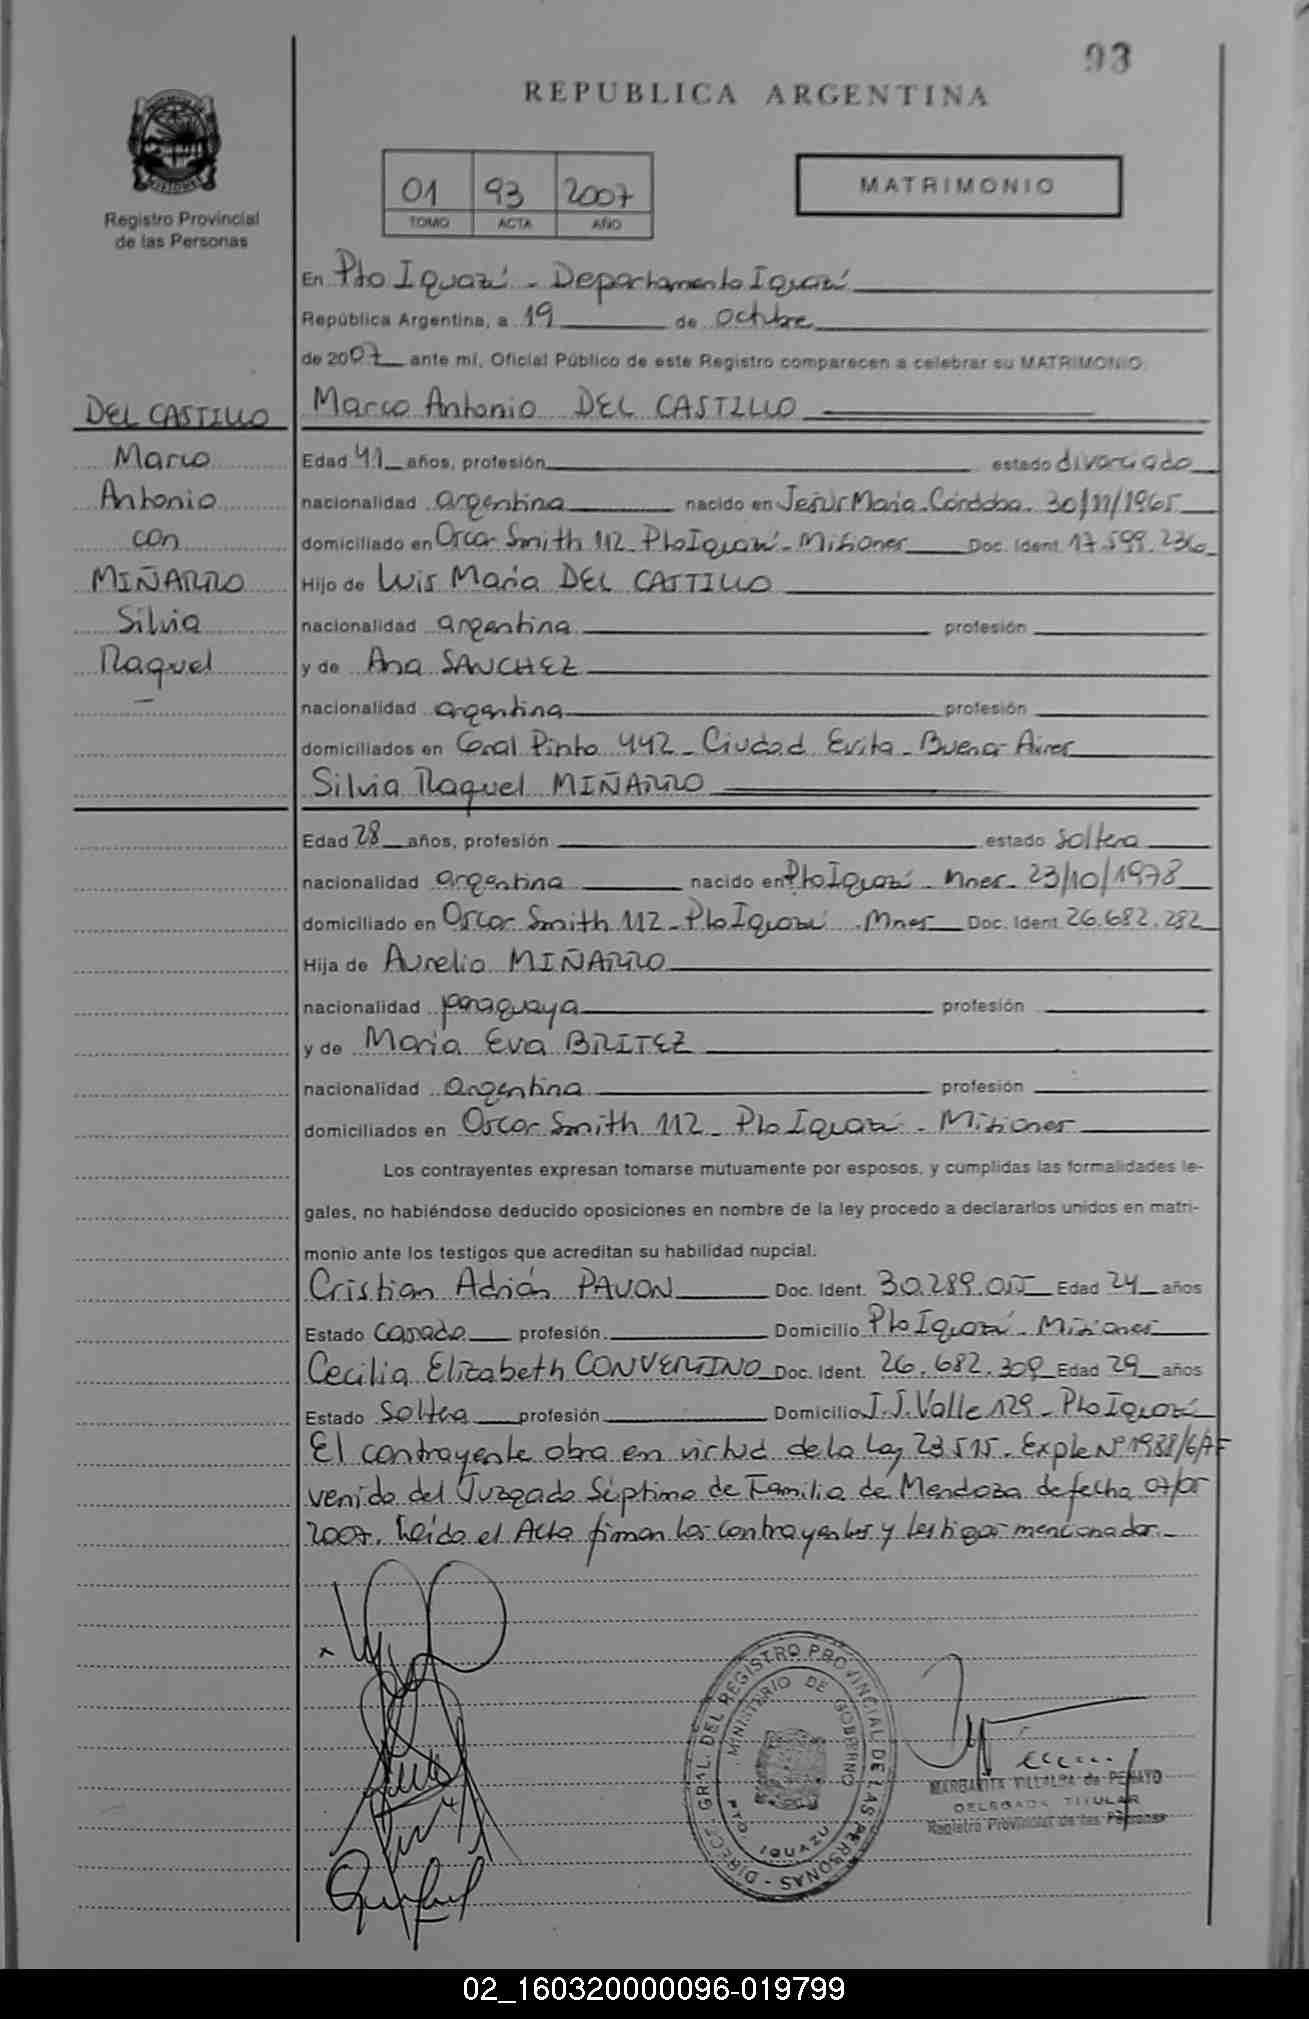 93
REPUBLICA ARGENTINA
Registro Provincial
de las Personas
01 93 2007
TOMO ACTA AÑO
MATRIMONIO
En Pto Iguazú - Departamento Iguazú
República Argentina, a 19 de octubre
de 2007 ante mí, Oficial Público de este Registro comparecen a celebrar su MATRIMONIO:
DEL CASTILLO
Marco
Antonio
con
MIÑARRO
Silvia
Raquel
Marco Antonio DEL CASTILLO
Edad 41 años, profesión estado divorciado
nacionalidad argentina nacido en Jesús María - Córdoba - 30/11/1965
domiciliado en Oscar Smith 112 - Pto Iguazú - Misiones Doc. Ident. 17.599.236
Hijo de Luis María DEL CASTILLO
nacionalidad argentina profesión
y de Ana SANCHEZ
nacionalidad argentina profesión
domiciliados en Gral Pinto 442 - Ciudad Evita - Buenos Aires
Silvia Raquel MIÑARRO
Edad 28 años, profesión estado soltera
nacionalidad argentina nacido en Pto Iguazú - Mnes - 23/10/1978
domiciliado en Oscar Smith 112 - Pto Iguazú - Mnes Doc. Ident. 26.682.282
Hija de Aurelio MIÑARRO
nacionalidad paraguaya profesión
y de María Eva BRITEZ
nacionalidad argentina profesión
domiciliados en Oscar Smith 112 - Pto Iguazú - Misiones
Los contrayentes expresan tomarse mutuamente por esposos, y cumplidas las formalidades le-
gales, no habiéndose deducido oposiciones en nombre de la ley procedo a declararlos unidos en matri-
monio ante los testigos que acreditan su habilidad nupcial.
Cristian Adrián PAVON Doc. Ident. 30.289.015 Edad 24 años
Estado casado profesión. Domicilio Pto Iguazú - Misiones
Cecilia Elizabeth CONVERTINO Doc. Ident. 26.682.309 Edad 29 años
Estado soltera profesión Domicilio J.J. Valle 129 - Pto Iguazú
El contrayente obra en virtud de la Ley 23515. Expte Nº 1988/6/7F
venido del Juzgado Séptimo de Familia de Mendoza de fecha 07/05
2007. Leído el Acta firman los contrayentes y testigos mencionados.-
DIRECC. GRAL. DEL REGISTRO PROVINCIAL DE LAS PERSONAS -
MINISTERIO DE GOBIERNO
PTO. IGUAZU
MARGARITA VILLALBA de PENAYO
DELEGADA TITULAR
Registro Provincial de las Personas
02_160320000096-019799